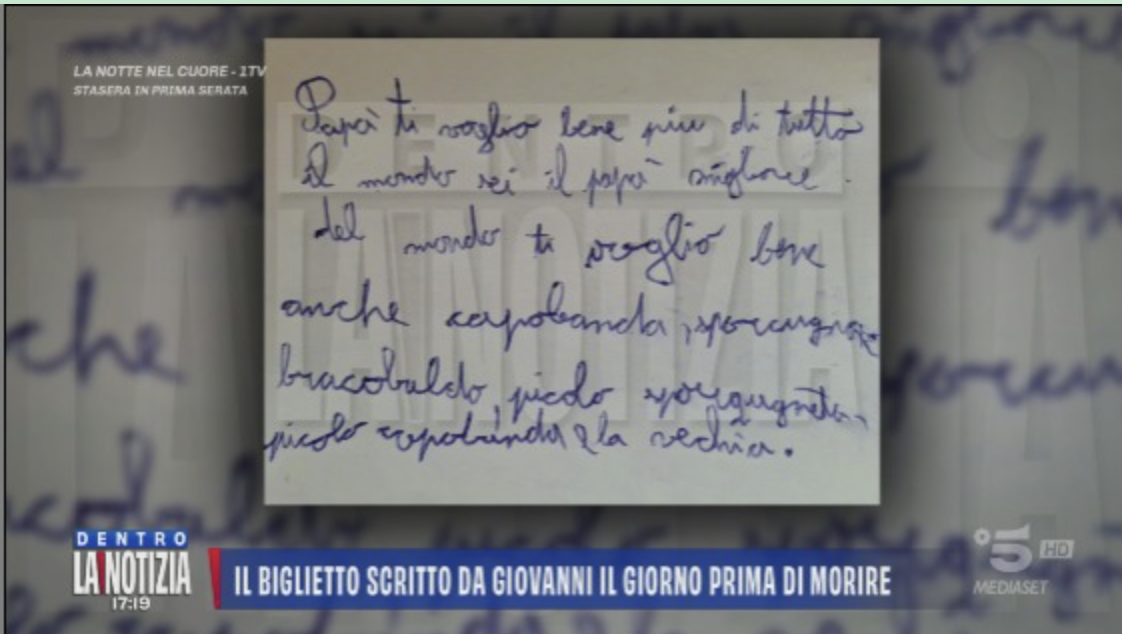 LA NOTTE NEL CUORE - 1TV
STASERA IN PRIMA SERATA
Papà ti voglio bene più di tutto
il mondo sei il papà migliore
del mondo ti voglio bene
anche capobanda,
bracobaldo, picolo
picolo capobanda e la vechia.
DENTRO
LA NOTIZIA
17:19
IL BIGLIETTO SCRITTO DA GIOVANNI IL GIORNO PRIMA DI MORIRE
5 HD
MEDIASET